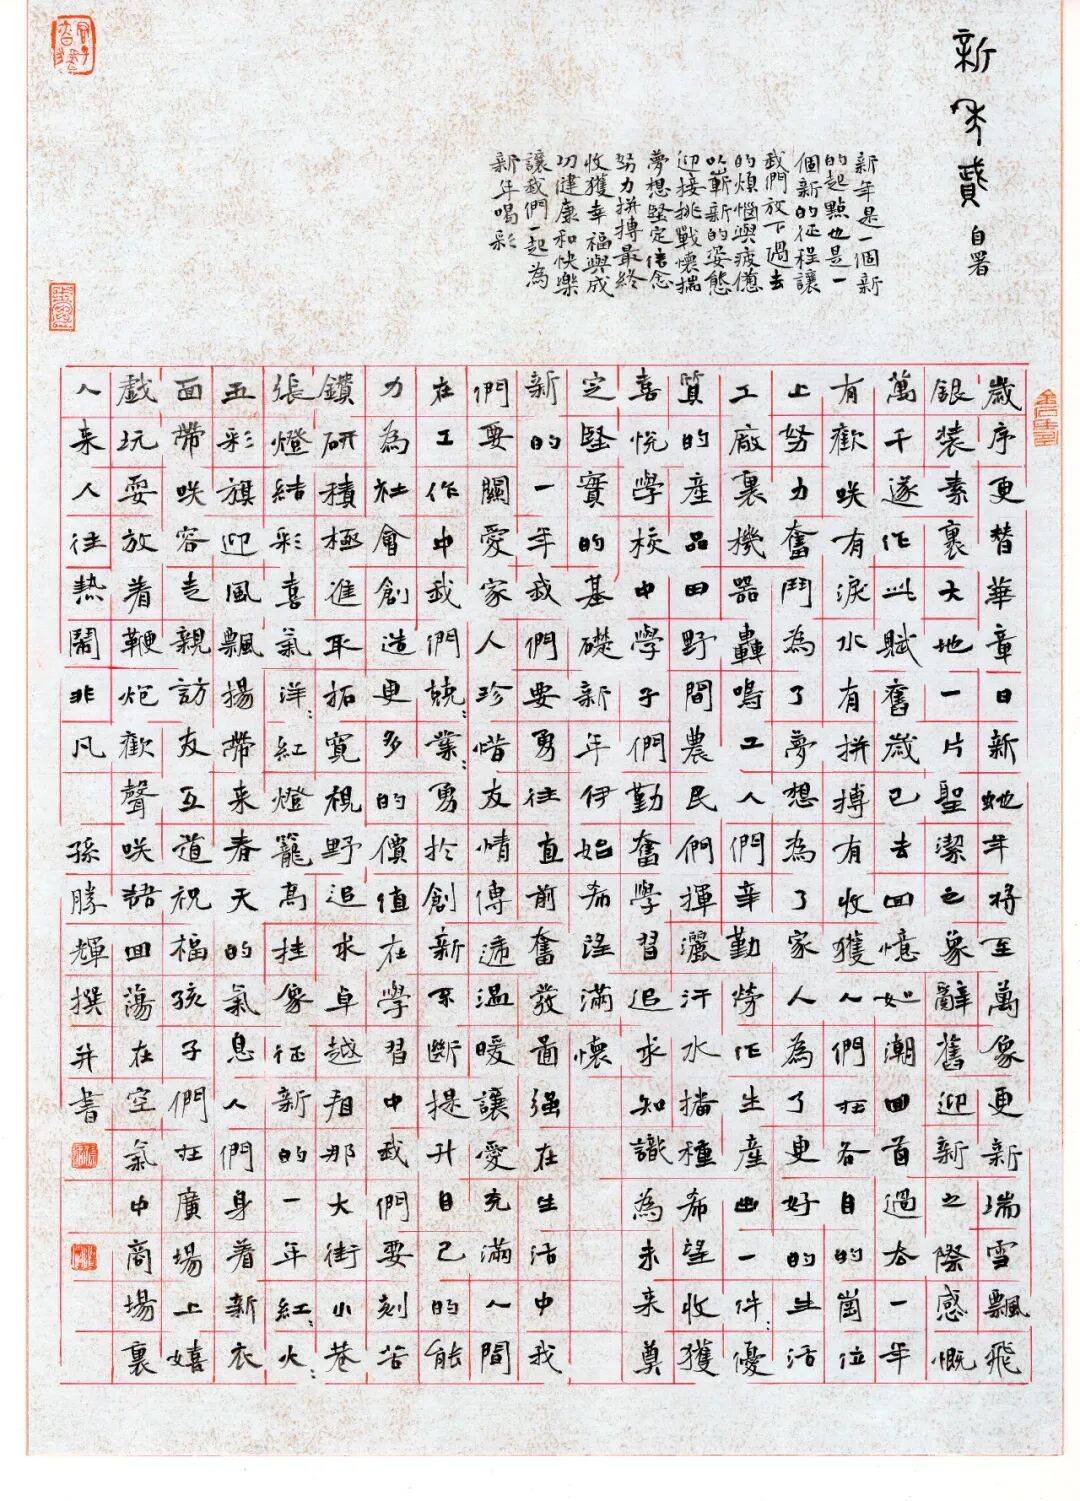 新年賦 自署
新年是一個新
的起點也是一
個新的征程讓
我們放下過去
的煩惱與疲憊
以嶄新的姿態
迎接挑戰懷揣
夢想堅定信念
努力拼搏最終
收獲幸福與成
功健康和快樂
讓我們一起為
新年喝彩
歲序更替華章日新虵年将至萬像更新瑞雪飄飛
銀装素裹大地一片聖潔之象辭舊迎新之際感慨
萬千遂作此賦舊歲已去回憶如潮回首過去一年
有歡咲有淚水有拼搏有收獲人們在各自的崗位
上努力奮鬥為了夢想為了家人為了更好的生活
工廠裏機器轟鳴工人們辛勤勞作生産出一件:優
質的産品田野間農民們揮灑汗水播種希望收獲
喜悦學校中學子們勤奮學習追求知識為未来奠
定堅實的基礎新年伊始希望滿懷
新的一年我們要勇往直前奮發圖强在生活中我
們要關愛家人珍惜友情傳遞温暖讓愛充滿人間
在工作中我們兢:業:勇於創新不斷提升自己的能
力為社會創造更多的價值在學習中我們要刻苦
鑽研積極進取拓寬視野追求卓越看那大街小巷
張燈結彩喜氣洋:紅燈籠高挂象征新的一年紅:火:
五彩旗迎風飄揚帶来春天的氣息人們身着新衣
面帶咲容走親訪友互道祝福孩子們在廣場上嬉
戲玩耍放着鞭炮歡聲咲語回蕩在空氣中商場裏
人来人往熱鬧非凡 孫勝輝撰并書